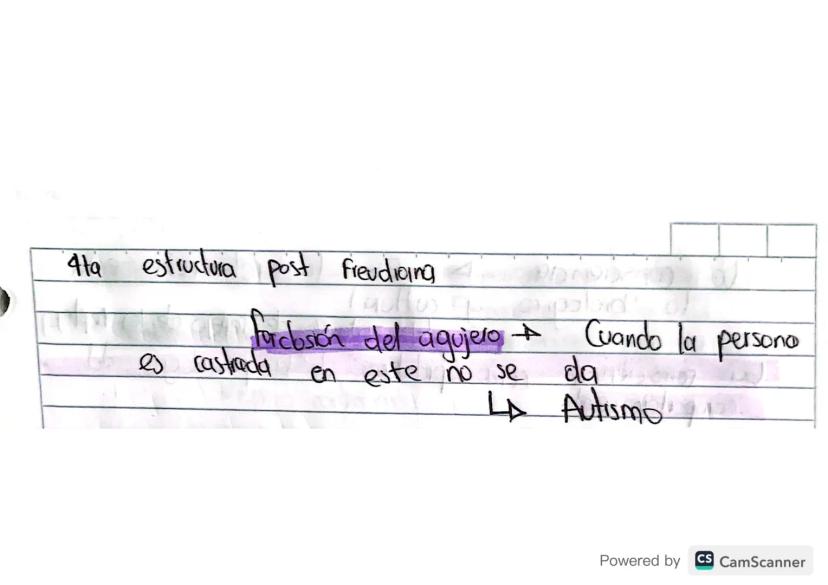 4ta estructura post freudiana
Forclosión del agujero → Cuando la persona
es castrada en este no se da
↳ Autismo
Powered by CS CamScanner